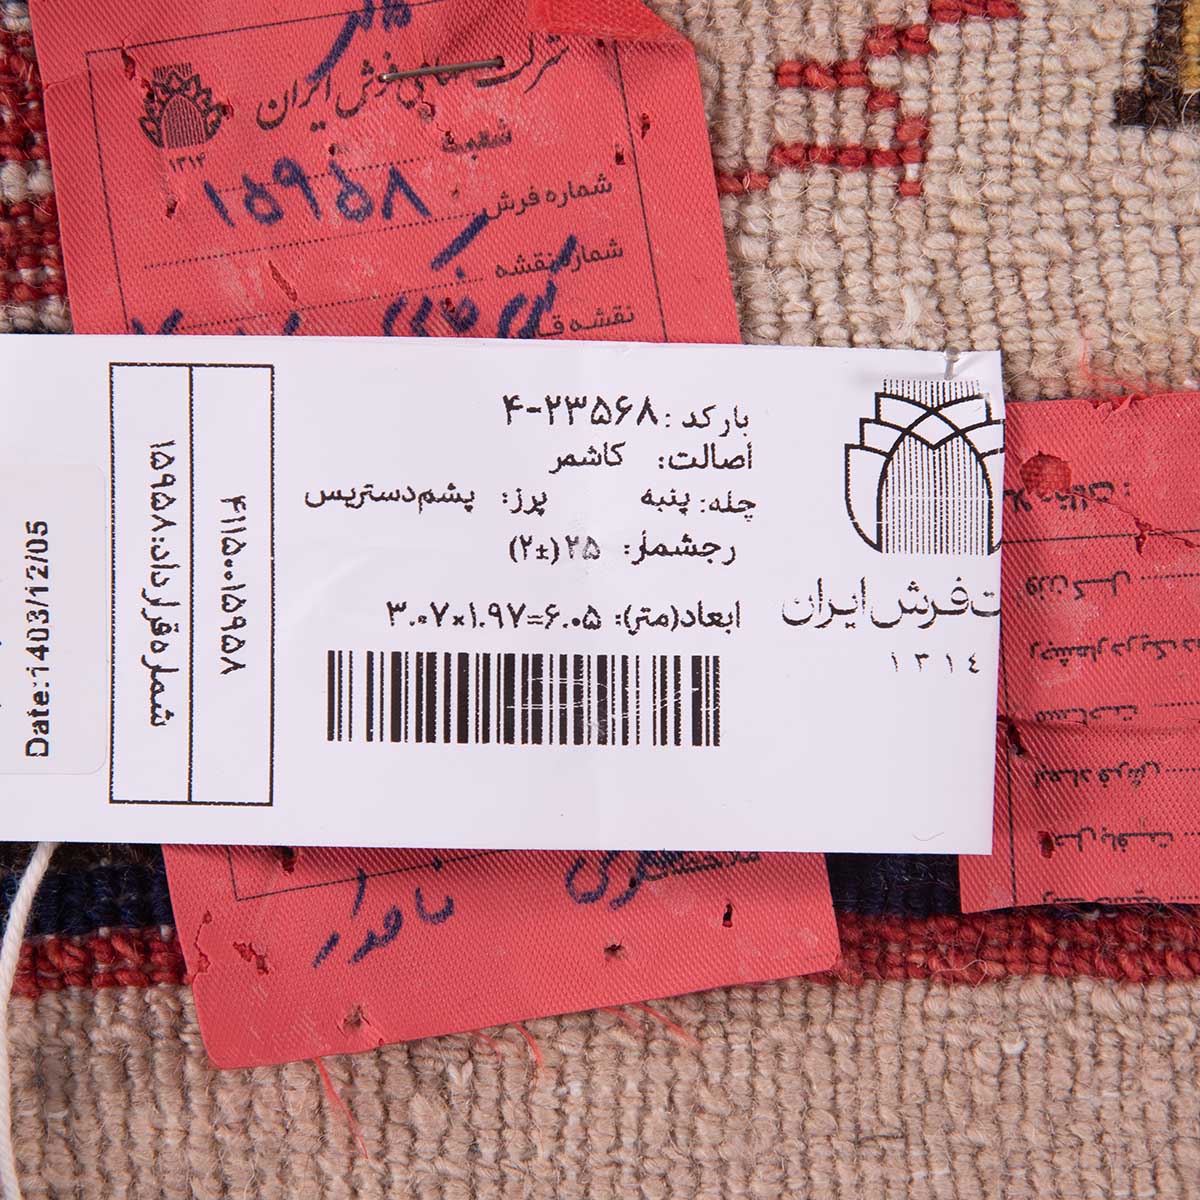 شرکت سهامی فرش ایران
۱۳۱۴
شعبه
شماره فرش ۱۵۹۵۸
شماره نقشه
نقشه
بارکد: ۲۳۵۶۸-۴
اصالت: کاشمر
چله: پنبه پرز: پشم دستریس
رجشمار: ۲۵(±۲)
ابعاد(متر): ۳.۰۷×۱.۹۷=۶.۰۵
ت فرش ایران
۱۳۱۴
۴۱۱۵۰۰۱۵۹۵۸
شماره قرارداد: ۱۵۹۵۸
Date:1403/12/05
وزن گل
رجشمار در یک
مساحت
ابعاد فرش
محل بافت